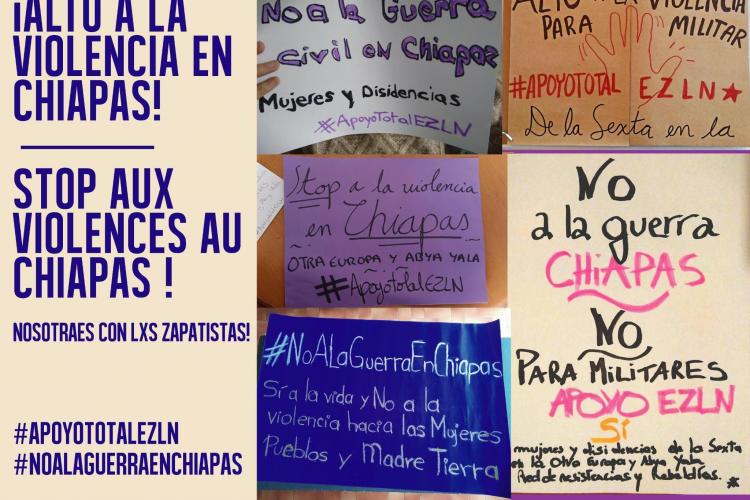 ¡ALTO A LA
VIOLENCIA EN
CHIAPAS!
STOP AUX
VIOLENCES AU
CHIAPAS !
NOSOTRAES CON LXS ZAPATISTAS!
#APOYOTOTALEZLN
#NOALAGUERRAENCHIAPAS
No a la Guerra
civil en Chiapaz
Mujeres y Disidencias
#ApoyoTotalEZLN
ALTO A LA VIOLENCIA
PARA MILITAR
#APOYOTOTAL EZLN
De la Sexta en la
Stop a la violencia
en Chiapas
OTRA EUROPA Y ABYA YALA
#ApoyoTotalEZLN
#NoALaGuerraEnChiapas
Sí a la vida y No a la
violencia hacia las Mujeres
Pueblos y Madre Tierra
No
a la guerra
CHiAPAS
No
PARA MiLiTARES
APOYO EZLN
SÍ
mujeres y disidencias de la Sexta
en la Otra Europa y Abya Yala
Red de resistencias y Rebeldías.